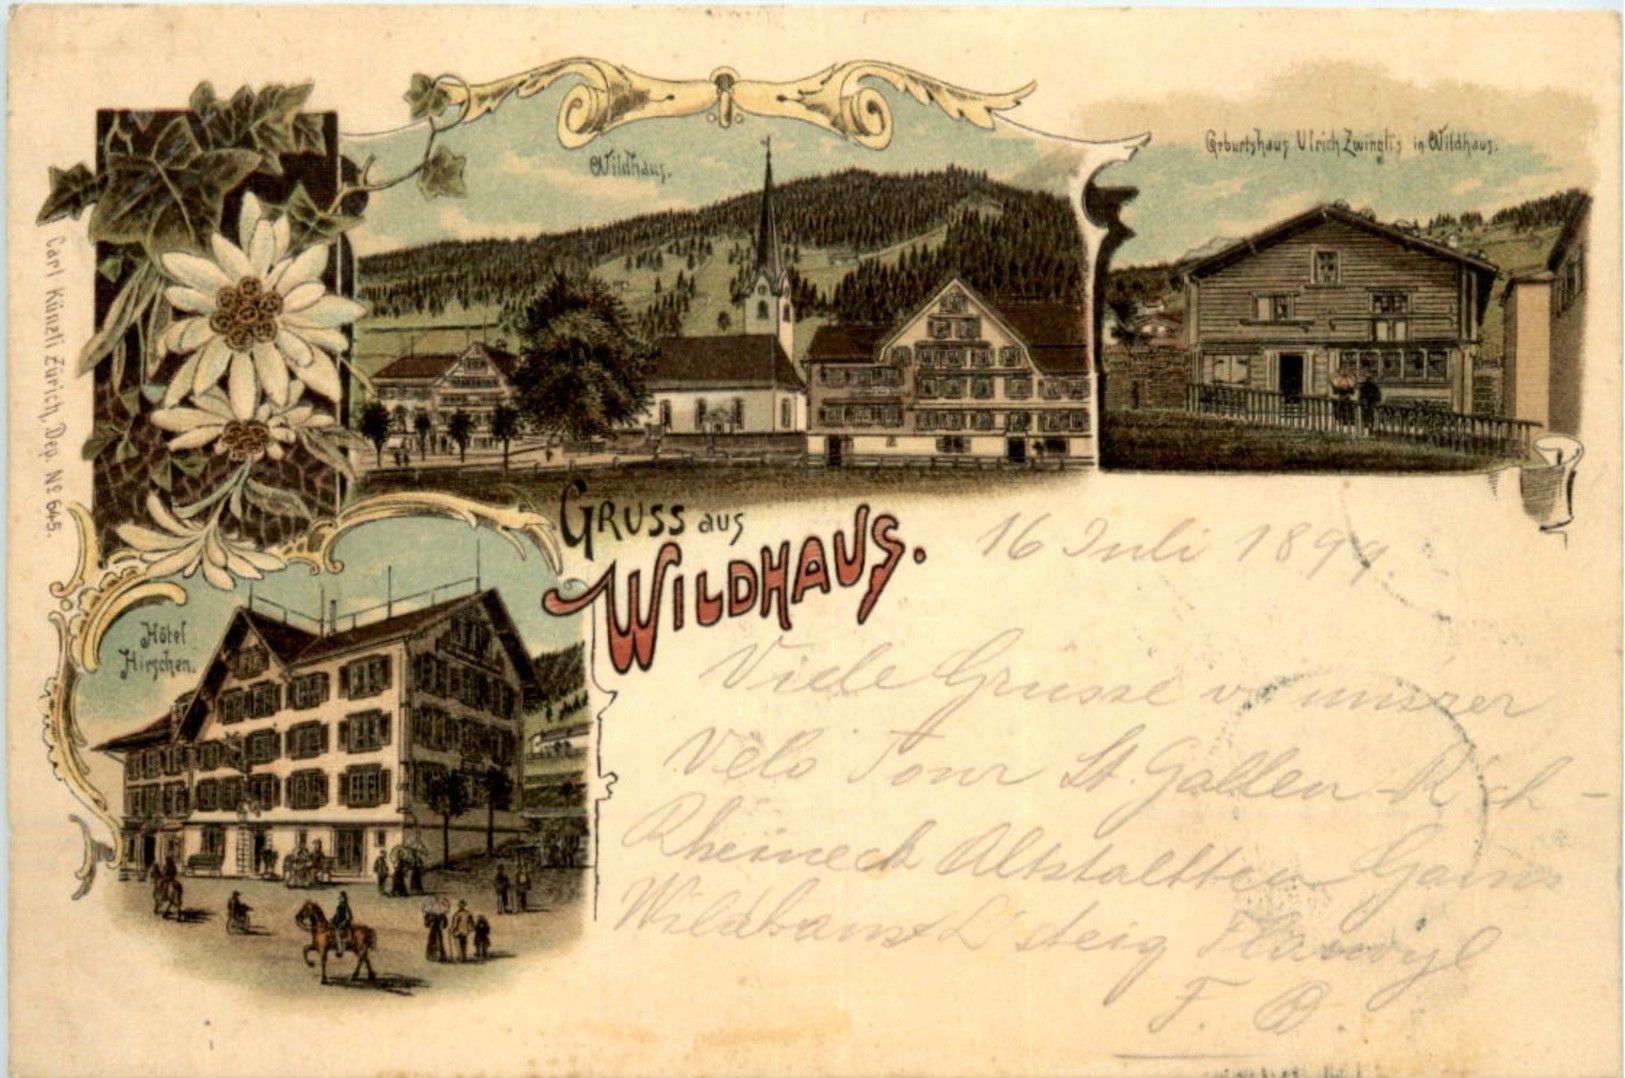 Wildhaus.
Geburtshaus Ulrich Zwingli's in Wildhaus.
Carl Künzli Zürich, Dep. No 645.
GRUSS aus
WILDHAUS.
Hôtel
Hirschen.
16 Juli 1899
Viele Grüsse v unserer
Velo Tour St. Gallen
Rheineck Altstaltten Gams
Wildhaus Flawyl